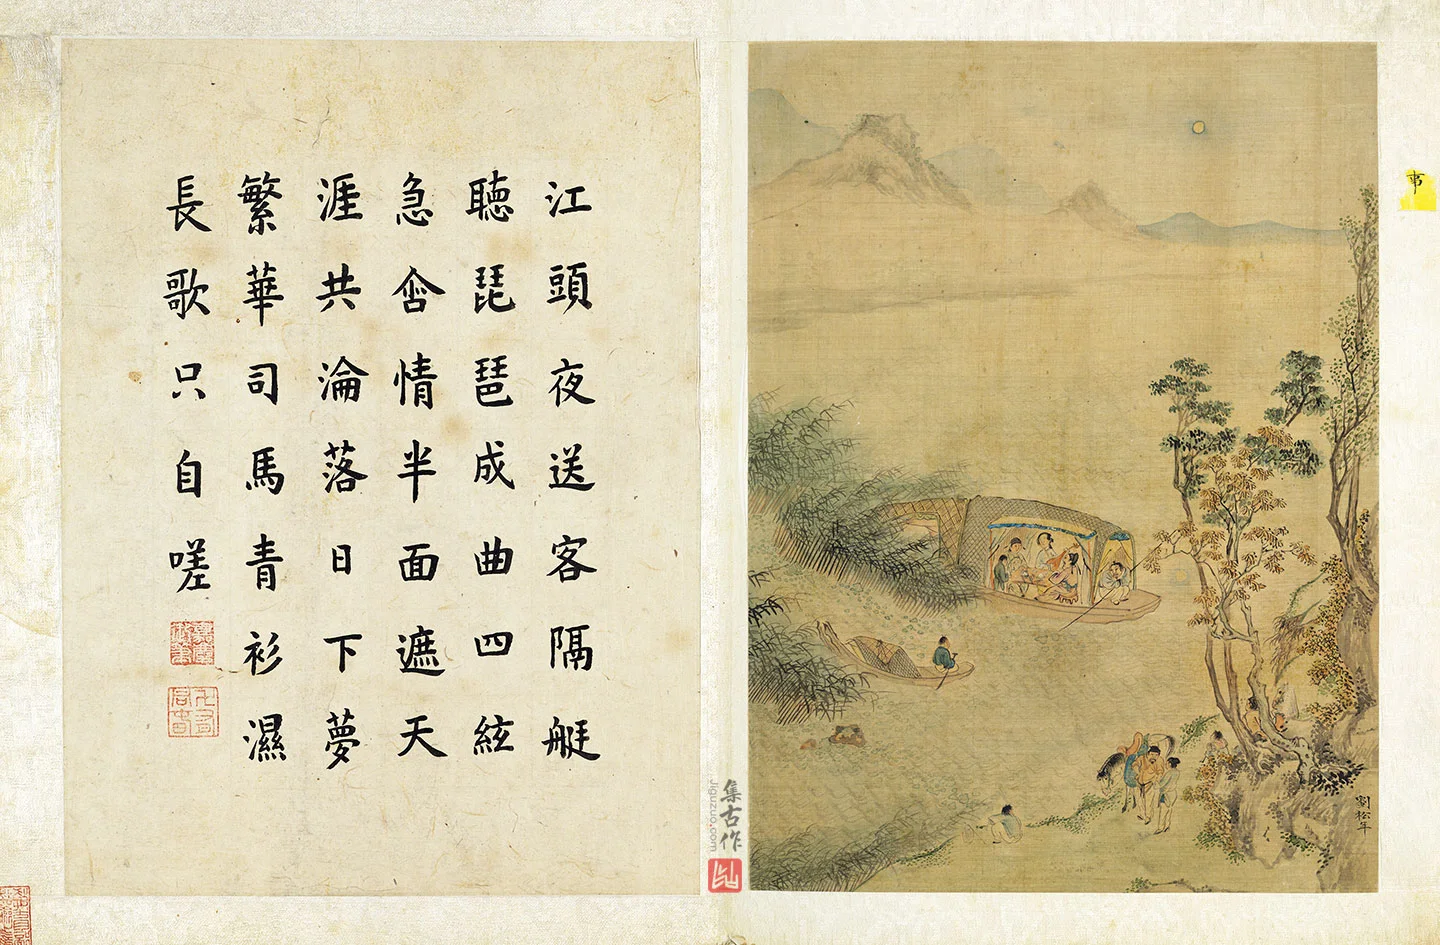 江頭夜送客隔艇
聽琵琶成曲四絃
急含情半面遮天
涯共淪落日下夢
繁華司馬青衫濕
長歌只自嗟
劉松年
集古作
jiguzuo.com